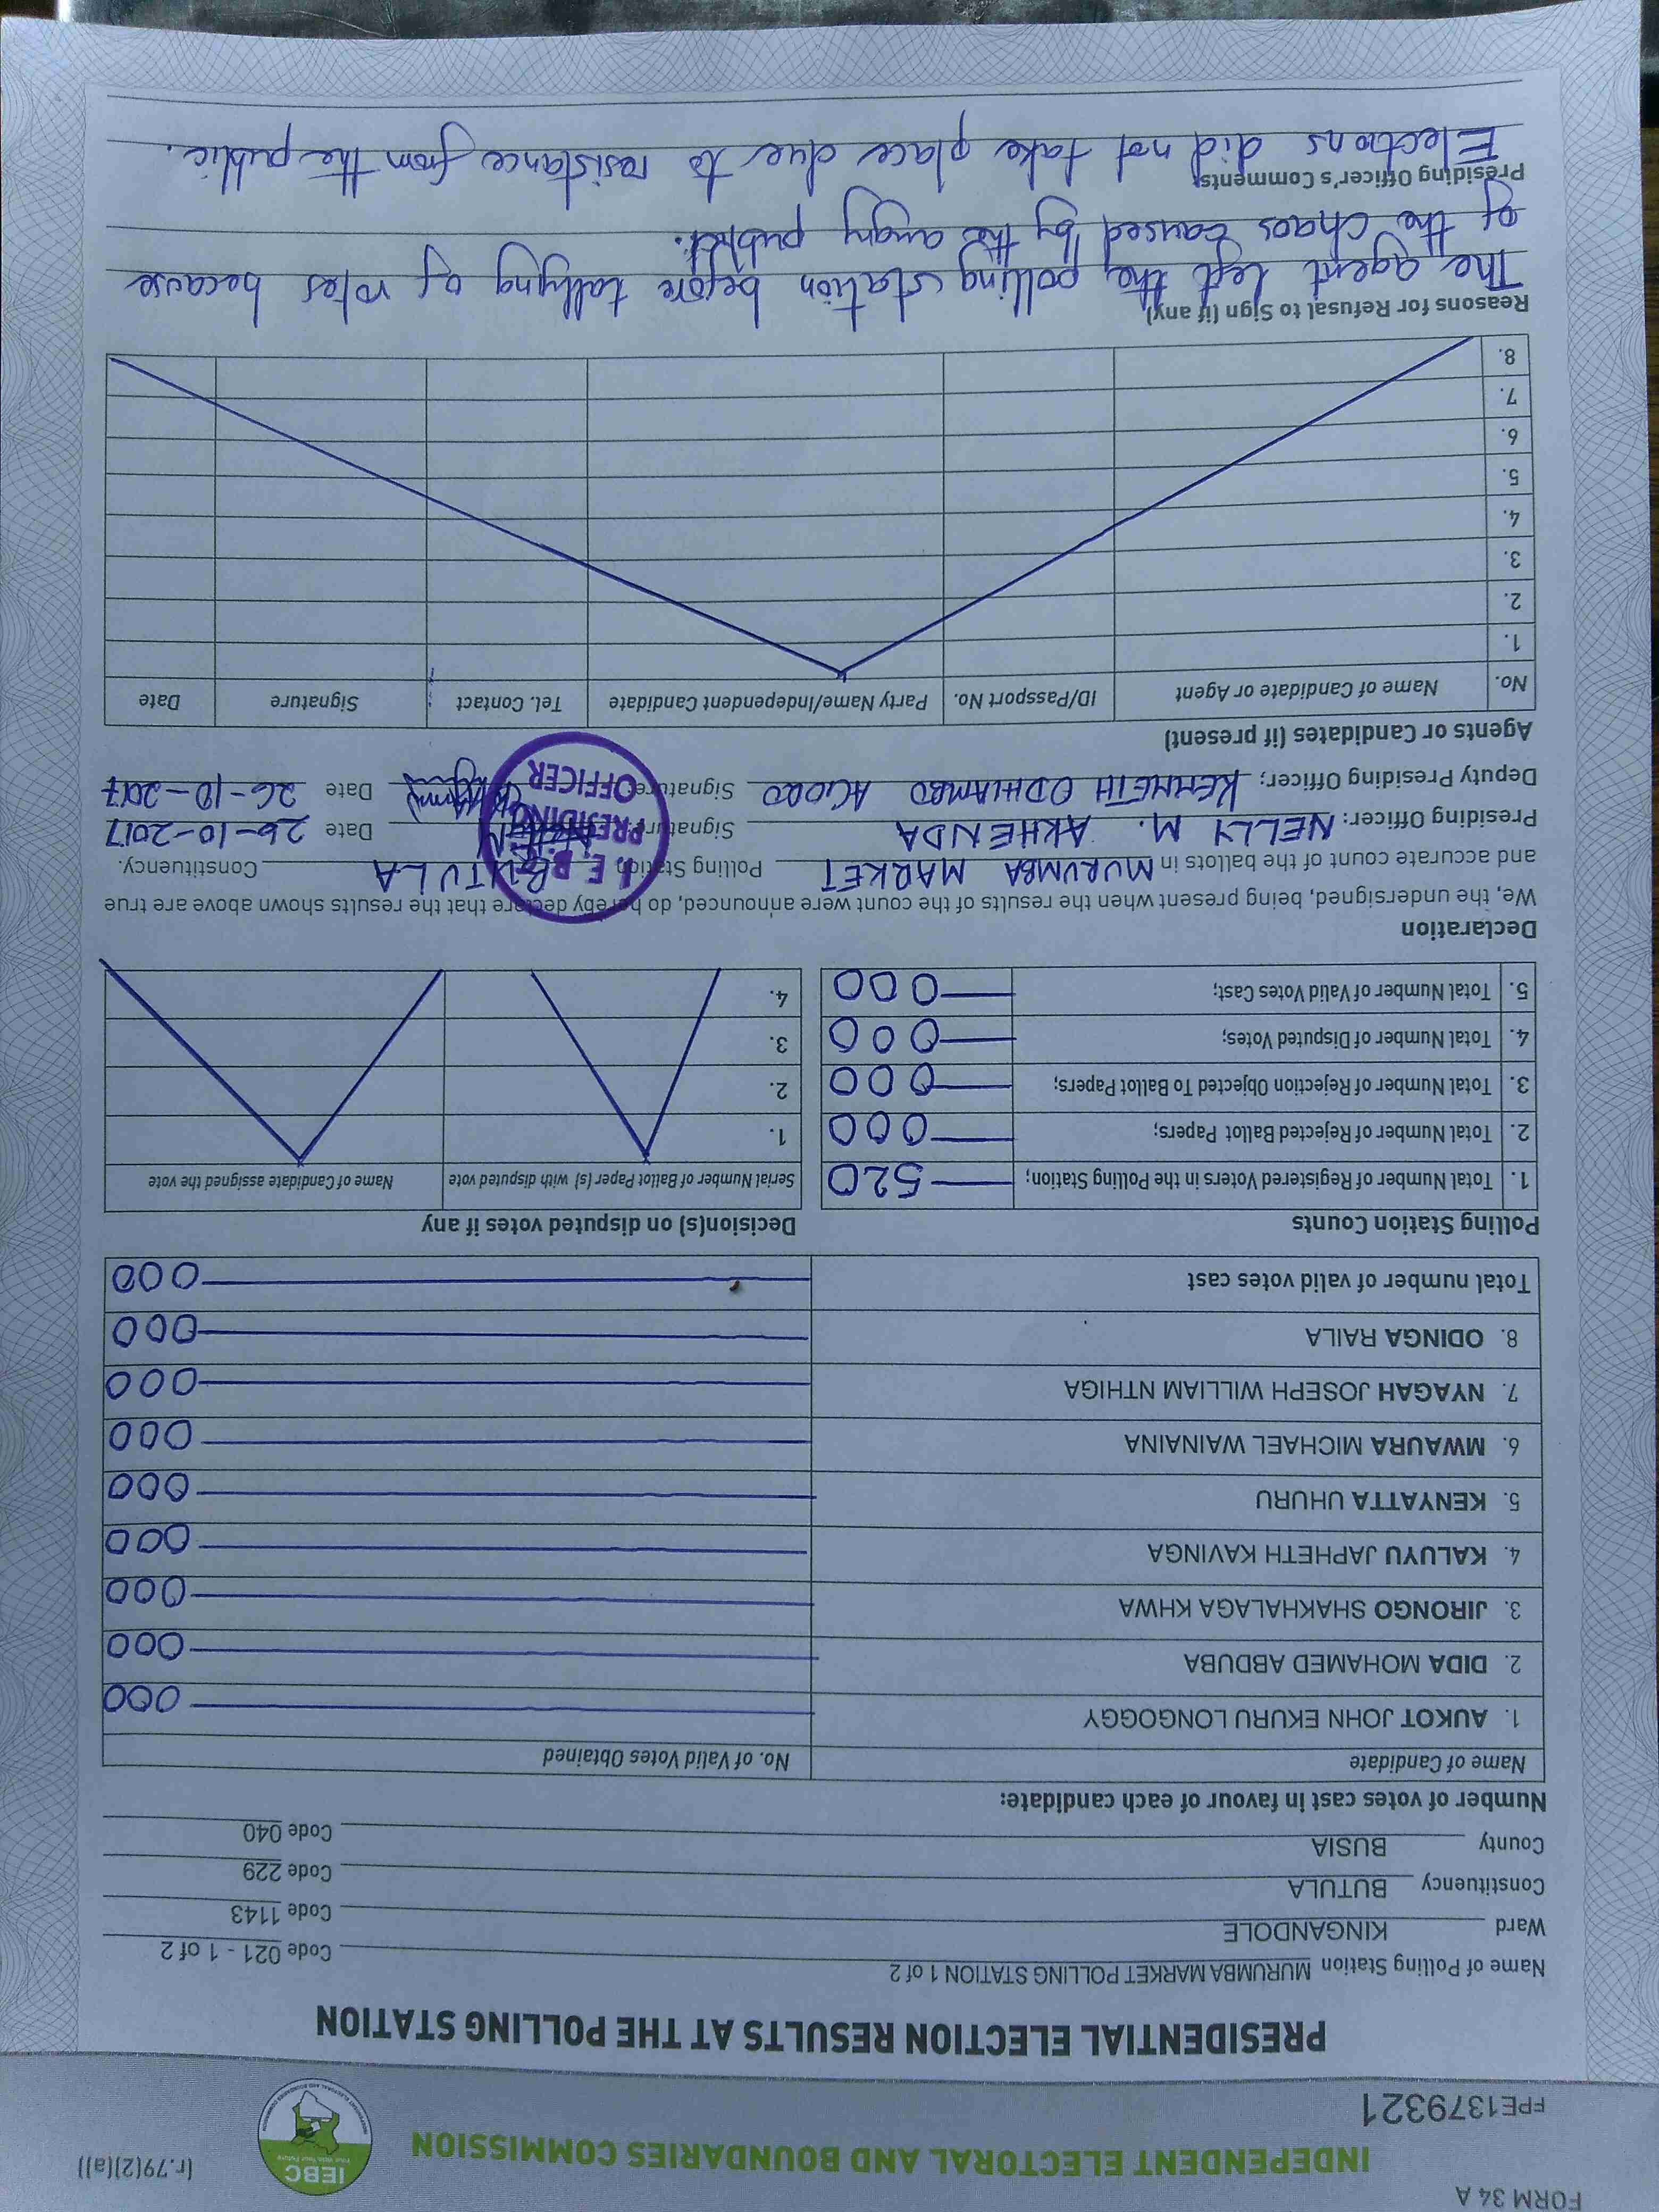 FORM 34 A
(r.79(2)(a))
INDEPENDENT ELECTORAL AND BOUNDARIES COMMISSION
IEBC
Your Vote, Your Future
INDEPENDENT ELECTORAL AND BOUNDARIES COMMISSION
FPE1379321
PRESIDENTIAL ELECTION RESULTS AT THE POLLING STATION
Name of Polling Station MURUMBA MARKET POLLING STATION 1 of 2 Code 021 - 1 of 2
Ward KINGANDOLE Code 1143
Constituency BUTULA Code 229
County BUSIA Code 040
Number of votes cast in favour of each candidate:
Name of Candidate No. of Valid Votes Obtained
1. AUKOT JOHN EKURU LONGOGGY 000
2. DIDA MOHAMED ABDUBA 000
3. JIRONGO SHAKHALAGA KHWA 000
4. KALUYU JAPHETH KAVINGA 000
5. KENYATTA UHURU 000
6. MWAURA MICHAEL WAINAINA 000
7. NYAGAH JOSEPH WILLIAM NTHIGA 000
8. ODINGA RAILA 000
Total number of valid votes cast 000
Polling Station Counts
1. Total Number of Registered Voters in the Polling Station; 520
2. Total Number of Rejected Ballot Papers; 000
3. Total Number of Rejection Objected To Ballot Papers; 000
4. Total Number of Disputed Votes; 000
5. Total Number of Valid Votes Cast; 000
Decision(s) on disputed votes if any
Serial Number of Ballot Paper (s) with disputed vote Name of Candidate assigned the vote
1.
2.
3.
4.
Declaration
We, the undersigned, being present when the results of the count were announced, do hereby declare that the results shown above are true
and accurate count of the ballots in MURUMBA MARKET Polling Station, BUTULA Constituency.
Presiding Officer: NELLY M. AKHENDA Signature Date 26-10-2017
Deputy Presiding Officer; KENNETH ODHIAMBO AGORO Signature Date 26-10-2017
I. E. B. C
PRESIDING
OFFICER
Agents or Candidates (if present)
No. Name of Candidate or Agent ID/Passport No. Party Name/Independent Candidate Tel. Contact Signature Date
1.
2.
3.
4.
5.
6.
7.
8.
Reasons for Refusal to Sign (if any)
The agent left the polling station before tallying of votes because
of the chaos caused by the angry public.
Presiding Officer's Comments
Elections did not take place due to resistance from the public.